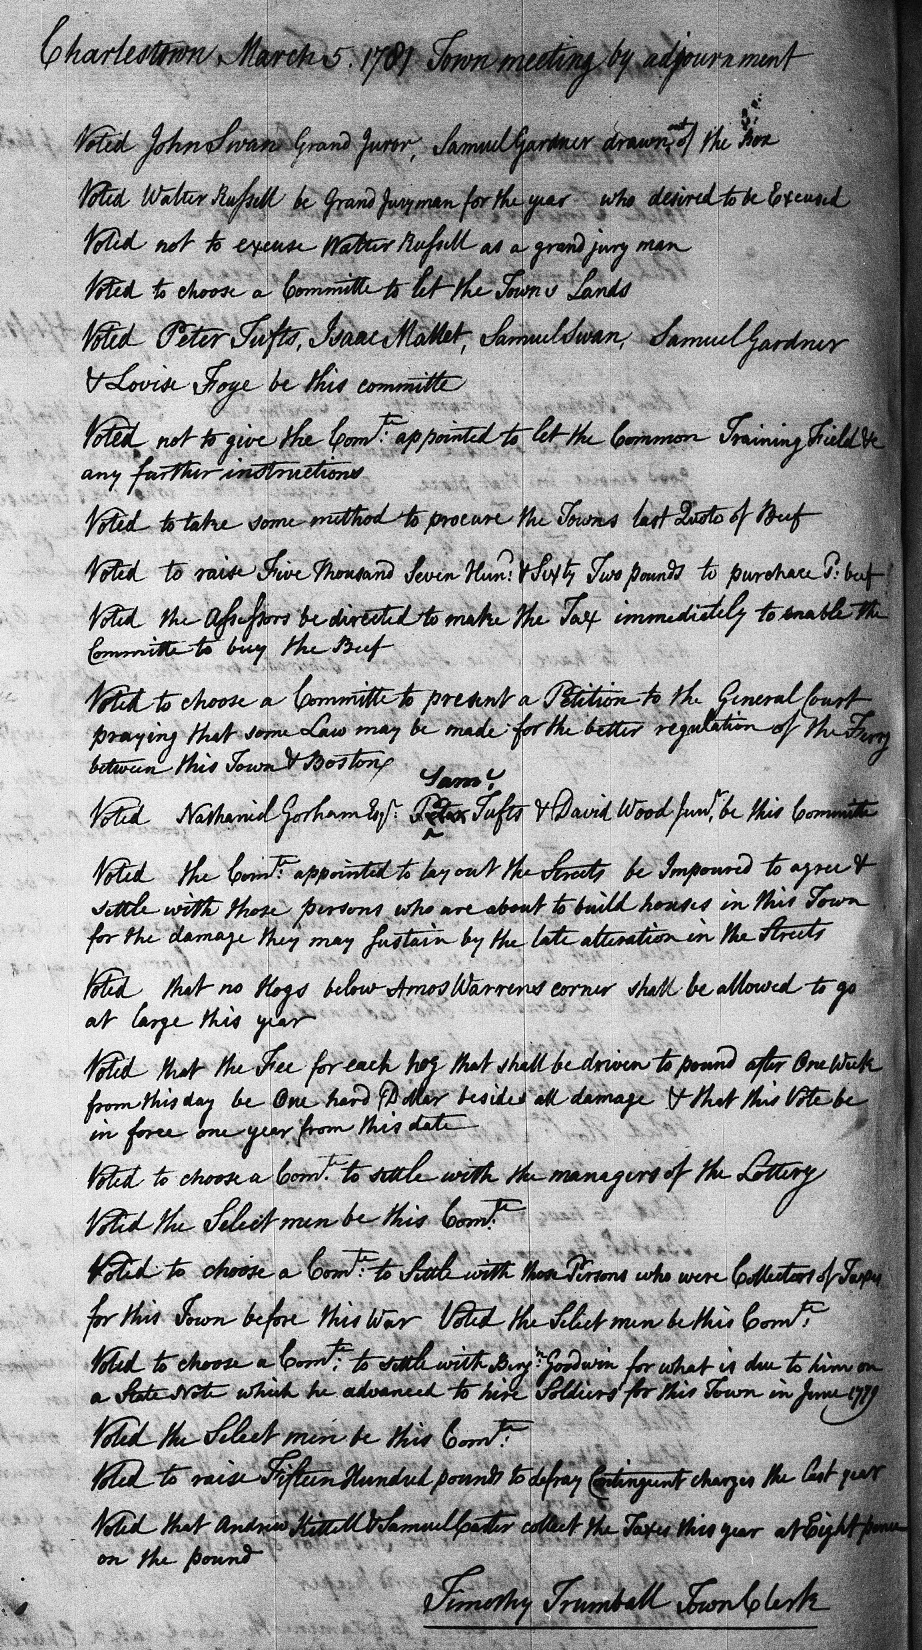 Charlestown March 5. 1781 Town meeting by adjournment
Voted John Swan Grand Juror, Samuel Gardner drawn out of the Box
Voted Walter Russell be Grand Juryman for the year who desired to be Excused
Voted not to excuse Walter Russell as a grand jury man
Voted to choose a Committe to let the Towns Lands
Voted Peter Tufts, Isaac Mallet, Samuel Swan, Samuel Gardner
& Lovise Foye be this committe
Voted not to give the Comte: appointed to let the Common Training Field &c
any farther instructions
Voted to take some method to procure the Towns last Quoto of Beef
Voted to raise Five Thousand Seven Hund: & Sixty Two pounds to purchace Sd: beef
Voted the Assessors be directed to make the Tax immediately to enable the
Committe to buy the Beef
Voted to choose a Committe to present a Petition to the General Court
praying that some Law may be made for the better regulation of the Ferry
between this Town & Boston
Voted Nathaniel Gorham Esqr. Saml. Tufts & David Wood Junr. be this Committe
Voted the Comte: appointed to lay out the Streets be Impoured to agree &
settle with those persons who are about to build houses in this Town
for the damage they may sustain by the late alteration in the Streets
Voted that no Hogs below Amos Warrens corner shall be allowed to go
at large this year
Voted that the Fee for each hog that shall be driven to pound after One Week
from this day be One hard Dollar besides all damage & that this Vote be
in force one year from this date
Voted to choose a Comte: to settle with the managers of the Lottery
Voted the Select men be this Comte:
Voted to choose a Comte: to Settle with those Persons who were Collectors of Taxes
for this Town before this War Voted the Select men be this Comte:
Voted to choose a Comte: to settle with Benjn: Goodwin for what is due to him on
a State Note which he advanced to hire Soldiers for this Town in June 1779
Voted the Select men be this Comte:
Voted to raise Fifteen Hundred pounds to defray Contingent charges the last year
Voted that Andrew Kettell & Samuel Carter collect the Taxes this year at Eight pence
on the pound
Timothy Trumball Town Clerk